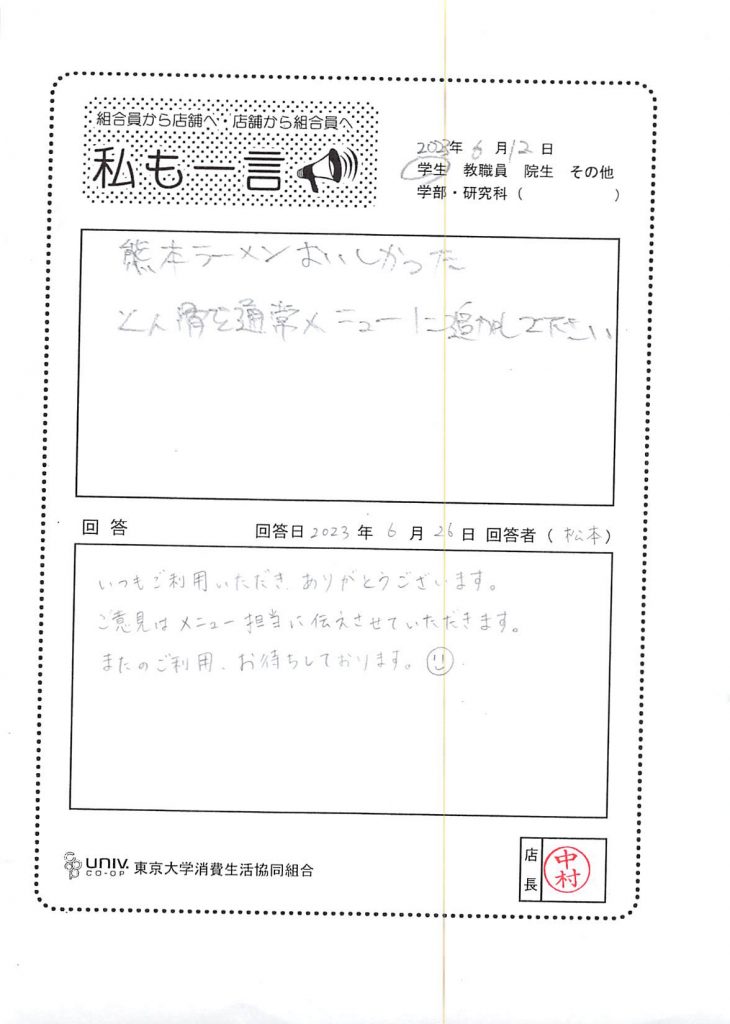 組合員から店舗へ・店舗から組合員へ
私も一言
2023年 6 月 12 日
学生 教職員 院生 その他
学部・研究科（ ）
熊本ラーメンおいしかった
とん骨を通常メニューに追加して下さい
回答 回答日 2023 年 6 月 26 日 回答者（松本）
いつもご利用いただき、ありがとうございます。
ご意見はメニュー担当に伝えさせていただきます。
またのご利用、お待ちしております。
UNIV. CO-OP 東京大学消費生活協同組合
店長 中村